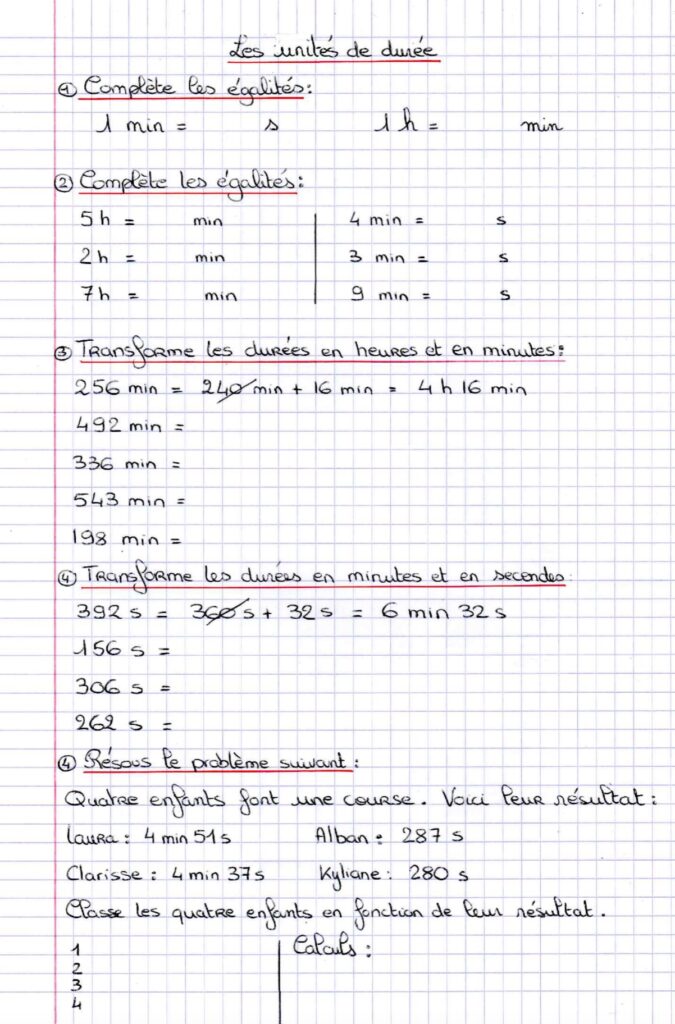 Les unités de durée
① Complète les égalités:
1 min = s 1 h = min
② Complète les égalités:
5 h = min 4 min = s
2 h = min 3 min = s
7 h = min 9 min = s
③ Transforme les durées en heures et en minutes:
256 min = 240 min + 16 min = 4 h 16 min
492 min =
336 min =
543 min =
198 min =
④ Transforme les durées en minutes et en secondes:
392 s = 360 s + 32 s = 6 min 32 s
156 s =
306 s =
262 s =
④ Résous le problème suivant:
Quatre enfants font une course. Voici leur résultat:
Laura: 4 min 51 s Alban: 287 s
Clarisse: 4 min 37 s Kyliane: 280 s
Classe les quatre enfants en fonction de leur résultat.
1 Calculs:
2
3
4